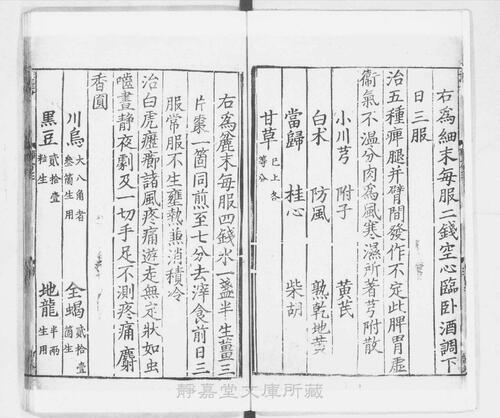 右為細末每服二錢空心臨卧酒調下
日三服
治五種痺腿并臂間發作不定此脾胃虛
衞氣不温分肉為風寒濕所著芎附散
小川芎 附子 黄芪
白术 防風 熟乾地黄
當歸 桂心 柴胡
甘草 已上各等分
右為麄末每服四錢水一盞半生薑三
片棗一箇同煎至七分去滓食前日三
服常服不生壅熱兼消積冷
治白虎癧癤諸風疼痛遊走無定狀如虫
嚙晝静夜劇及一切手足不測疼痛麝
香圓
川烏 大八角者叁箇生用 全蝎 貳拾壹箇生
黑豆 貳拾壹粒生 地龍 半兩生用
靜嘉堂文庫所藏